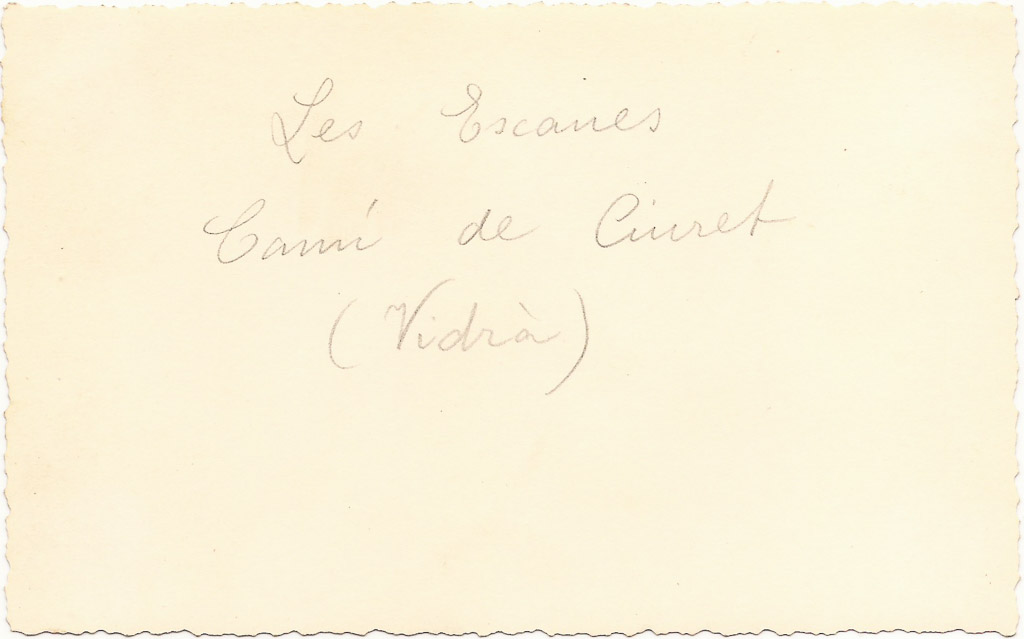 Les Escanes
Camí de Ciuret
(Vidrà)